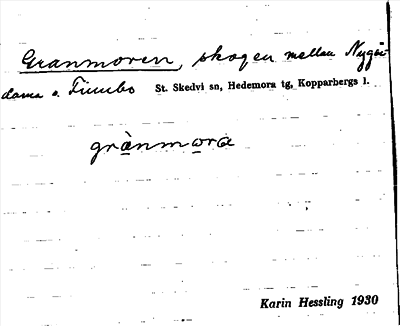 Granmoren, skogen mellan Nygår
darna o. Fimbo St. Skedvi sn, Hedemora tg, Kopparbergs l.
grànmora
Karin Hessling 1930